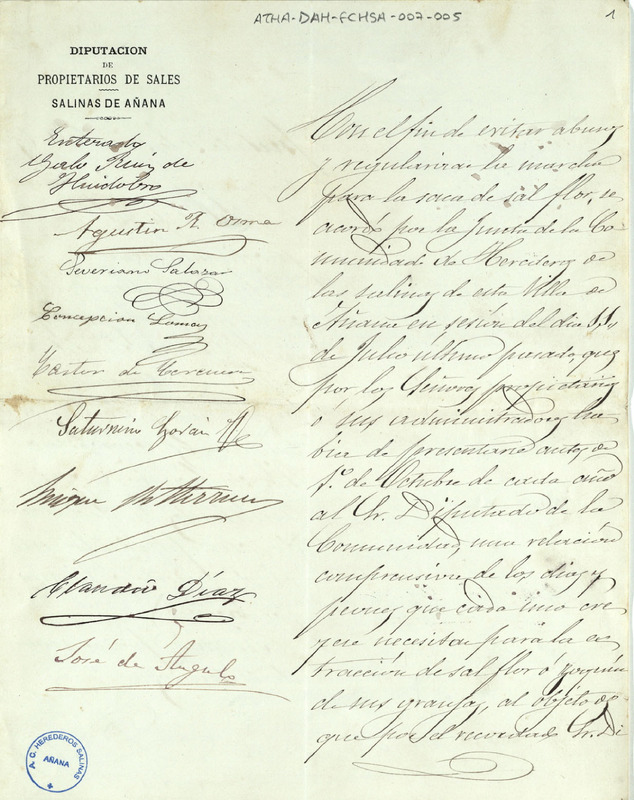 ATHA-DAH-FCHSA-007-005
1
DIPUTACION
DE
PROPIETARIOS DE SALES
SALINAS DE AÑANA
Enterado
Galo Ruiz de
Huidobro
Agustin R. Osma
Severiano Salazar
Concepcion
Castor de
Saturnino
Claudio Díaz
José de Angulo
A.C. HEREDEROS SALINAS
AÑANA
Con el fin de evitar abusos
y regularizar la marcha
para la saca de sal flor, se
acordó por la Junta de la Co-
munidad de Herederos de
las salinas de esta Villa de
Añana en sesión del dia
de Julio último pasado, que
por los Señores propietarios
ó sus administradores ha-
bia de presentarse antes de
1º de Octubre de cada año
al Sr. Diputado de la
Comunidad, una relación
comprensiva de los dias y
peones que cada uno cre-
yere necesitar para la ex-
tracción de sal flor ó
de sus granjas, al objeto de
que por el recordado Sr. Di